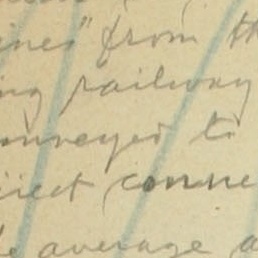 ines" from th
ng railway
onveyed to
irect conne
e average a